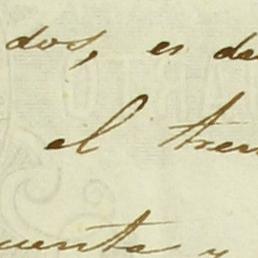 dos, es da
el tren
cuenta y